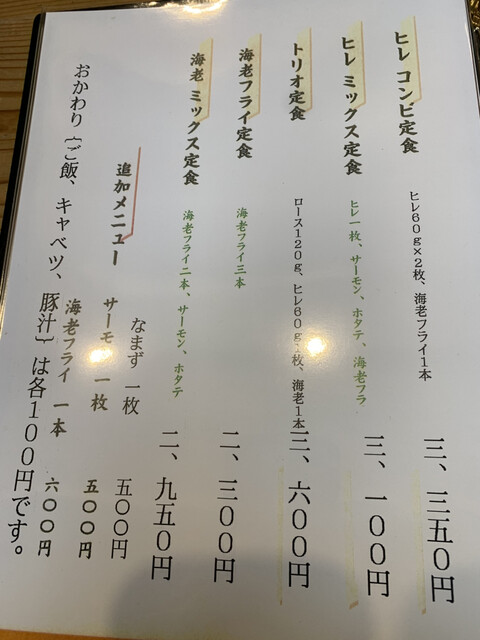 ヒレ コンビ定食 ヒレ60g×2枚、海老フライ1本 三、三五0円
ヒレ ミックス定食 ヒレ一枚、サーモン、ホタテ、海老フラ 三、一00円
トリオ定食 ロース120g、ヒレ60g1枚、海老1本 三、六00円
海老フライ定食 海老フライ三本 二、三00円
海老 ミックス定食 海老フライ二本、サーモン、ホタテ 二、九五0円
追加メニュー
なまず 一枚 五〇〇円
サーモン 一枚 五〇〇円
海老フライ 一本 六〇〇円
おかわり〔ご飯、キャベツ、豚汁〕は各100円です。